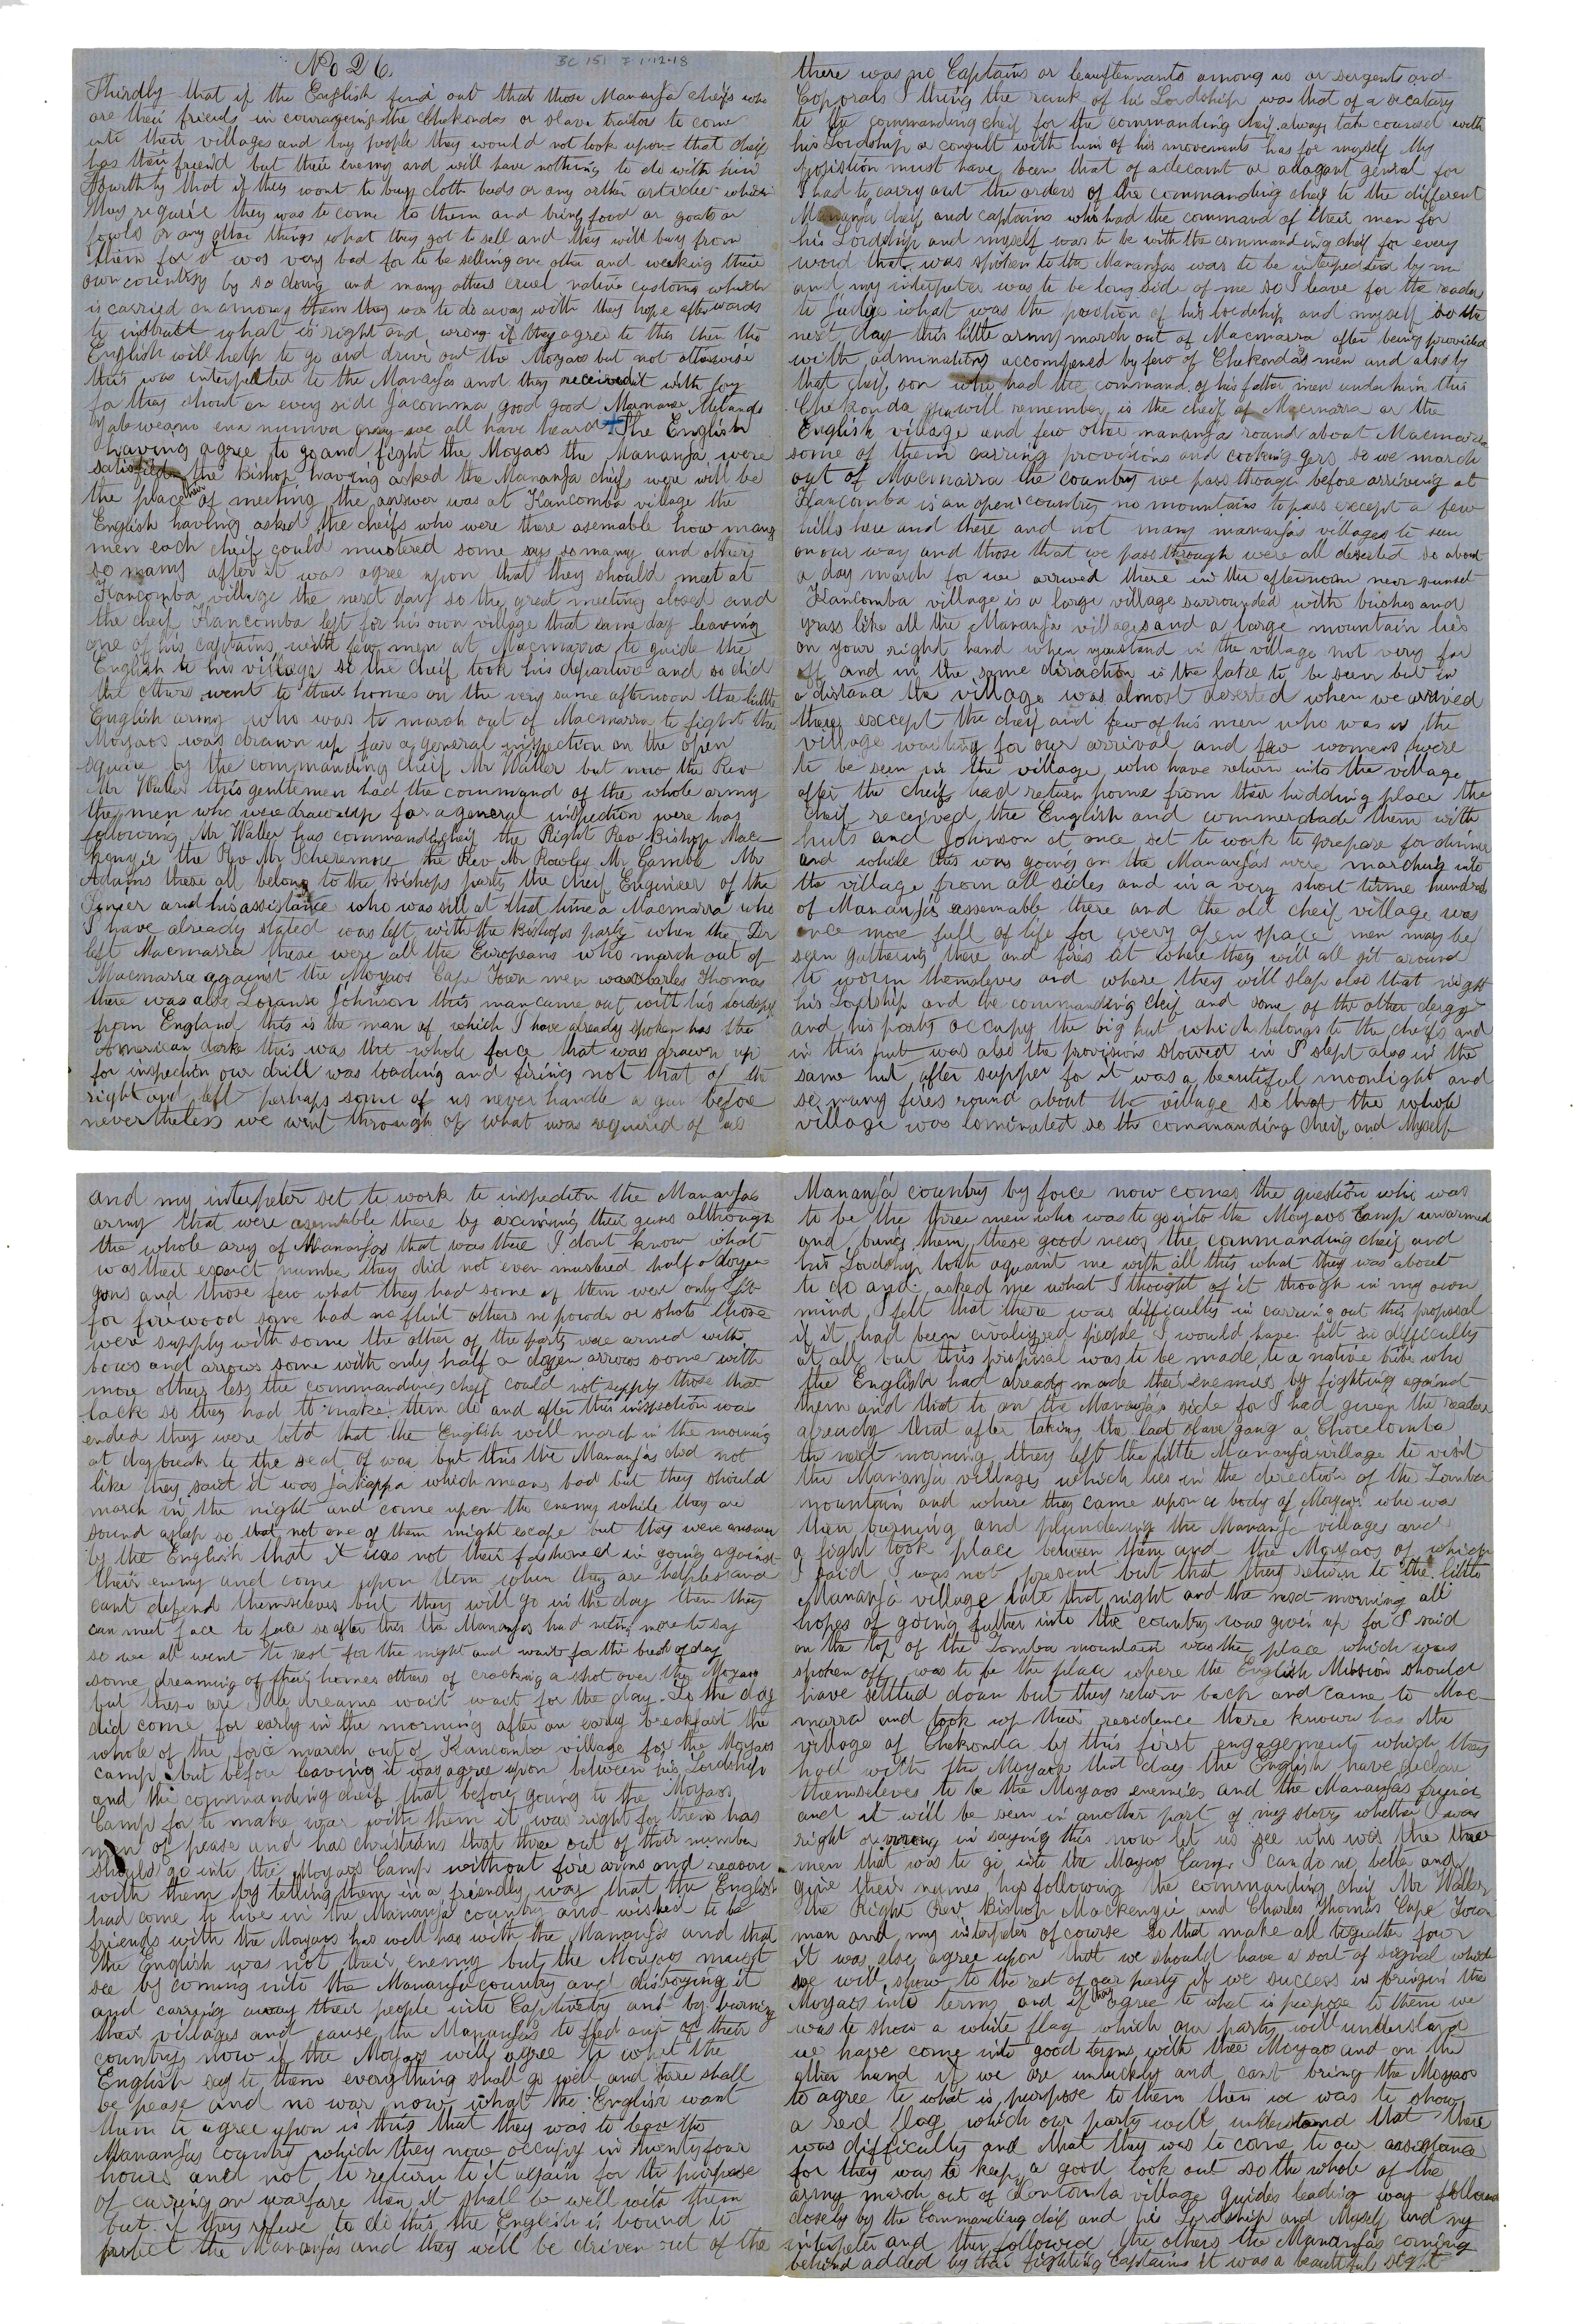 No 26.
BC 151 F 1.12.18
Thirdly that if the English find out that those Mananja cheifs who
are their friends in couragering the Chekondas or slave traitors to come
into their villages and buy people they would not look upon that cheif
has their friend but their enemy and will have nothing to do with him
Fourthly that if they want to buy cloth beads or any other articles which
they require they was to come to them and bring food or goats or
fowls or any other things what they got to sell and they will buy from
them for it was very bad for to be selling one other and weeking their
own country by so doing and many others cruel native customs which
is carried on among them they was to do away with they hope afterwards
to instruct what is right and wrong if they agree to this then the
English will help to go and drive out the Moyaos but not otherwise
this was interpeted to the Mananjas and they received it with joy
for they shout on every side Jacomma good good
we all have heard + The English
having agree to go and fight the Moyaos the Mananja were
satisfied the Bishop having asked the Mananja cheifs were will be
the place of meeting the answer was at Kancomba village the
English having asked the cheifs who were there asemable how many
men each cheif could mustered some says so many and others
so many after it was agree upon that they should meet at
Kancomba village the next day so the great meeting closed and
the cheif Kancomba left for his own village that same day leaving
one of his captains with few men at Macmarra to guide the
English to his village so the cheif took his departure and so did
the others went to their homes on the very same afternoon the little
English army who was to march out of Macmarra to fight the
Moyaos was drawn up for a general inspection on the open
square by the commanding cheif Mr Waller but now the Rev
Mr Waller this gentlemen had the command of the whole army
the men who were drawn up for a general inspection were has
following Mr Waller has commanding cheif the Right Rev Bishop Mac-
kenzie the Rev Mr Scheremore the Rev Mr Rowley Mr Gamble Mr
Adams these all belong to the Bishops party the cheif Engineer of the
Pineer and his assistance who was still at that time a Macmarra who
I have already stated was left with the Bishops party when the Dr
left Macmarra these were all the Europeans who march out of
Macmarra against the Moyaos Cape Town men was Charles Thomas
there was also Loranso Johnson this man came out with his lordship
from England this is the man of which I have already spoken has the
American darke this was the whole force that was drawn up
for inspection our drill was loading and firing not that of the
right and left perhaps some of us never handle a gun before
nevertheless we went through of what was required of us
there was no Captains or leauftennants among us or sergents and
Coporals I thing the rank of his Lordship was that of a secatary
to the commanding cheif for the commanding cheif always take counsel with
his Lordship or consult with him of his movements has for myself My
position must have been that of adecamt or adagant genral for
I had to carry out the orders of the commanding cheif to the different
Mananja cheif and captains who had the command of their men for
his Lordship and myself was to be with the commanding cheif for every
word that was spoken to the Mananjas was to be intepeted by me
and my intepeter was to be long side of me so I leave for the reader
to judge what was the position of his lordship and myself so the
next day this little army march out of Macmarra after being provided
with adminations accompened by few of Chekonda's men and also by
that cheif son who had the command of his father men under him this
Chekonda you will remember is the cheif of Macmarra or the
English village and few other mananja round about Macmarra
some of them carring provisions and cooking gers so we march
out of Macmarra the country we pass though before arriving at
Kancomba is an open country no mountains to pass except a few
hills here and there and not many mananjas villages to seen
on our way and those that we pass through were all deserted so about
a day march for we arrived there in the afternoon near sunset
Kancomba village is a large village surrounded with bushes and
grass like all the Mananja villages and a large mountain lies
on your right hand when you stand in the village not very far
off and in the same diraction is the lake to be seen but in
a distance the village was almost deserted when we arrived
there except the cheif and few of his men who was in the
village waiting for our arrival and few womens were
to be seen in the village who have return into the village
after the cheifs had return home from their hidding place the
cheif received the English and commerdade them with
huts and Johnson at once set to work to prepare for dinner
and while this was going on the Mananjas were marching into
the village from all sides and in a very short time hundreds
of Mananjas assemable there and the old cheif village was
once more full of life for every open space men may be
seen gathering there and fires lit where they will all sit around
to worm themseleves and where they will slep also that night
his Lordship and the commanding cheif and some of the other clergy
and his party occupy the big hut which belongs to the cheifs and
in this hut was also the provisions stowed in I slept also in the
same hut after supper for it was a beautiful moonlight and
so many fires round about the village so that the whole
village was lominated so the commanding cheif and Myself
and my interpeter set to work to inspection the Mananjas
army that were asemable there by axcimining their guns although
the whole army of Mananjas that was there I dont know what
was their exact number they did not even mustered half a dozen
guns and those few what they had some of them were only fit
for firewood some had no flint others no powder or shots those
were supply with some the other of the party were armed with
bows and arrows some with only half a dozen arrows some with
more others less the commanding cheif could not supply those that
lack so they had to make them do and after this inspection was
ended they were told that the English will march in the morning
at day break to the seat of war but this the Mananjas did not
like they said it was Jakappa which means bad but they should
march in the night and come upon the enemy while they are
sound aslep so that not one of them might escape but they were answer
by the English that it was not their fashoned in going against
their enemy and come upon them when they are helpless and
cant defend themseleves but they will go in the day then they
can meet face to face so after this the Mananjas had nothing more to say
so we all went to rest for the night and wait for the break of day
some dreaming of their homes others of cracking a shot over the Moyaos
but these are Idle dreams wait wait for the day. So the day
did come for early in the morning after an early breakfast the
whole of the force march out of Kancomba village for the Moyaos
camp but before leaving it was agree upon between his Lordship
and the commanding cheif that before going to the Moyaos
Camp for to make war with them it was right for them has
men of pease and has christians that three out of their number
should go into the Moyaos Camp without fire arms and reason
with them by telling them in a friendly way that the English
had come to live in the Mananja country and wished to be
friends with the Moyaos has well has with the Mananja and that
the English was not their enemy but the Moyaos must
see by coming into the Mananja country and distroying it
and carrying away their people into Captivety and by burning
their villages and cause the Mananjas to fled out of their
country now if the Moyaos will agree to what the
English say to them everything shall go well and there shall
be pease and no war now what the English want
them to agree upon is this that they was to leave the
Mananjas country which they now occupy in twenty four
hours and not to return to it again for the purpose
of carring on warfare then it shall be well with them
but if they refuse to do this the English is bound to
protect the Mananjas and they will be driven out of the
Mananja country by force now comes the question who was
to be the three men who was to go into the Moyaos Camp unarmed
and bring them these good news the commanding cheif and
his Lordship both aquaint me with all this what they was about
to do and asked me what I thought of it though in my own
mind I felt that there was difficulty in carring out this proposal
if it had been civalizsed people I would have felt no difficulty
at all but this proposal was to be made to a native tribe who
the English had already made their enemies by fighting against
them and that to on the Mananja side for I had given the reader
already that after taking the last slave gang a Chocelomba
the next morning they left the little Mananja village to visit
the Mananja villages which lies in the direction of the Zomba
mountain and where they came upon a body of Moyaos who was
then burning and plundering the Mananja villages and
a fight took place between them and the Moyaos of which
I said I was not present but that they return to the little
Mananja village late that night and the next morning all
hopes of going further into the country was given up for I said
on the top of the Zomba mountain was the place which was
spoken off was to be the place where the English Mission should
have settled down but they return back and came to Mac-
marra and took up their residence there known has the
village of Chekonda by this first engagement which they
had with the Moyaos that day the English have declare
themseleves to be the Moyaos enemies and the Mananjas freind
and it will be seen in another part of my story whether I was
right or wrong in saying this now let us see who was the three
men that was to go into the Moyaos Camp I can do no better and
give their names has following the commanding cheif Mr Waller
the Right Rev Bishop Mackenzie and Charles Thomas Cape Town
man and my intepeter of course so that make all together four
it was also agree upon that we should have a sort of signal which
we will show to the rest of our party if we success in bringin the
Moyaos into terms and if they agree to what is purpose to them we
was to show a white flag which our party will understand
we have come into good terms with thee Moyaos and on the
other hand if we are unluckly and cant bring the Moyaos
to agree to what is purpose to them then we was to show
a red flag which our party will understand that there
was difficulty and that they was to come to our assestance
for they was to keep a good look out so the whole of the
army march out of Kancomba village guides leading way followed
closely by the Commanding cheif and his Lordship and Myself and my
intepeter and then followed the others the Mananjas coming
behind added by thair fighting Captains it was a beautiful sight